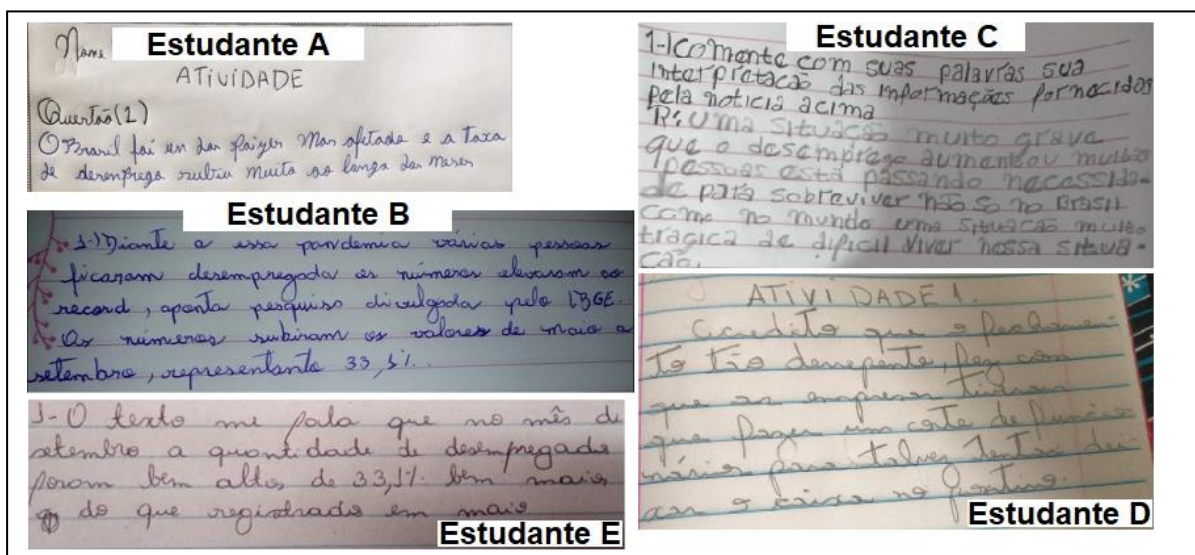 Estudante A
Nome
ATIVIDADE
Questão (1)
O Brasil foi un dos países Mas afetado e a taxa
de desemprego subiu muito ao longo dos meses
Estudante B
1-) Diante a essa pandemia várias pessoas
ficaram desempregada os números elevaram ao
record, aponta pesquisa divulgada pelo IBGE.
Os números subiram os valores de maio a
setembro, representanto 33,1%.
Estudante E
1- O texto me fala que no mês de
setembro a quantidade de desempregado
foram bem altos de 33,1% bem mais
do que registrado em maio
Estudante C
1-) Comente com suas palavras sua
interpretação das informações fornecidos
pela noticia acima
R: Uma situação muito grave
que o desemprego aumentou muitas
pessoas está passando necessida-
de para sobreviver não so no Brasil
como no mundo uma situação muito
tragica de dificil viver nossa situa-
cão.
ATIVIDADE 1.
Acredito que o fechamen
to tão derepente, fez com
que as empresas tiveram
que fazer um corte de funcio
nários para talvez tentar dei
xar o caixa no positivo.
Estudante D